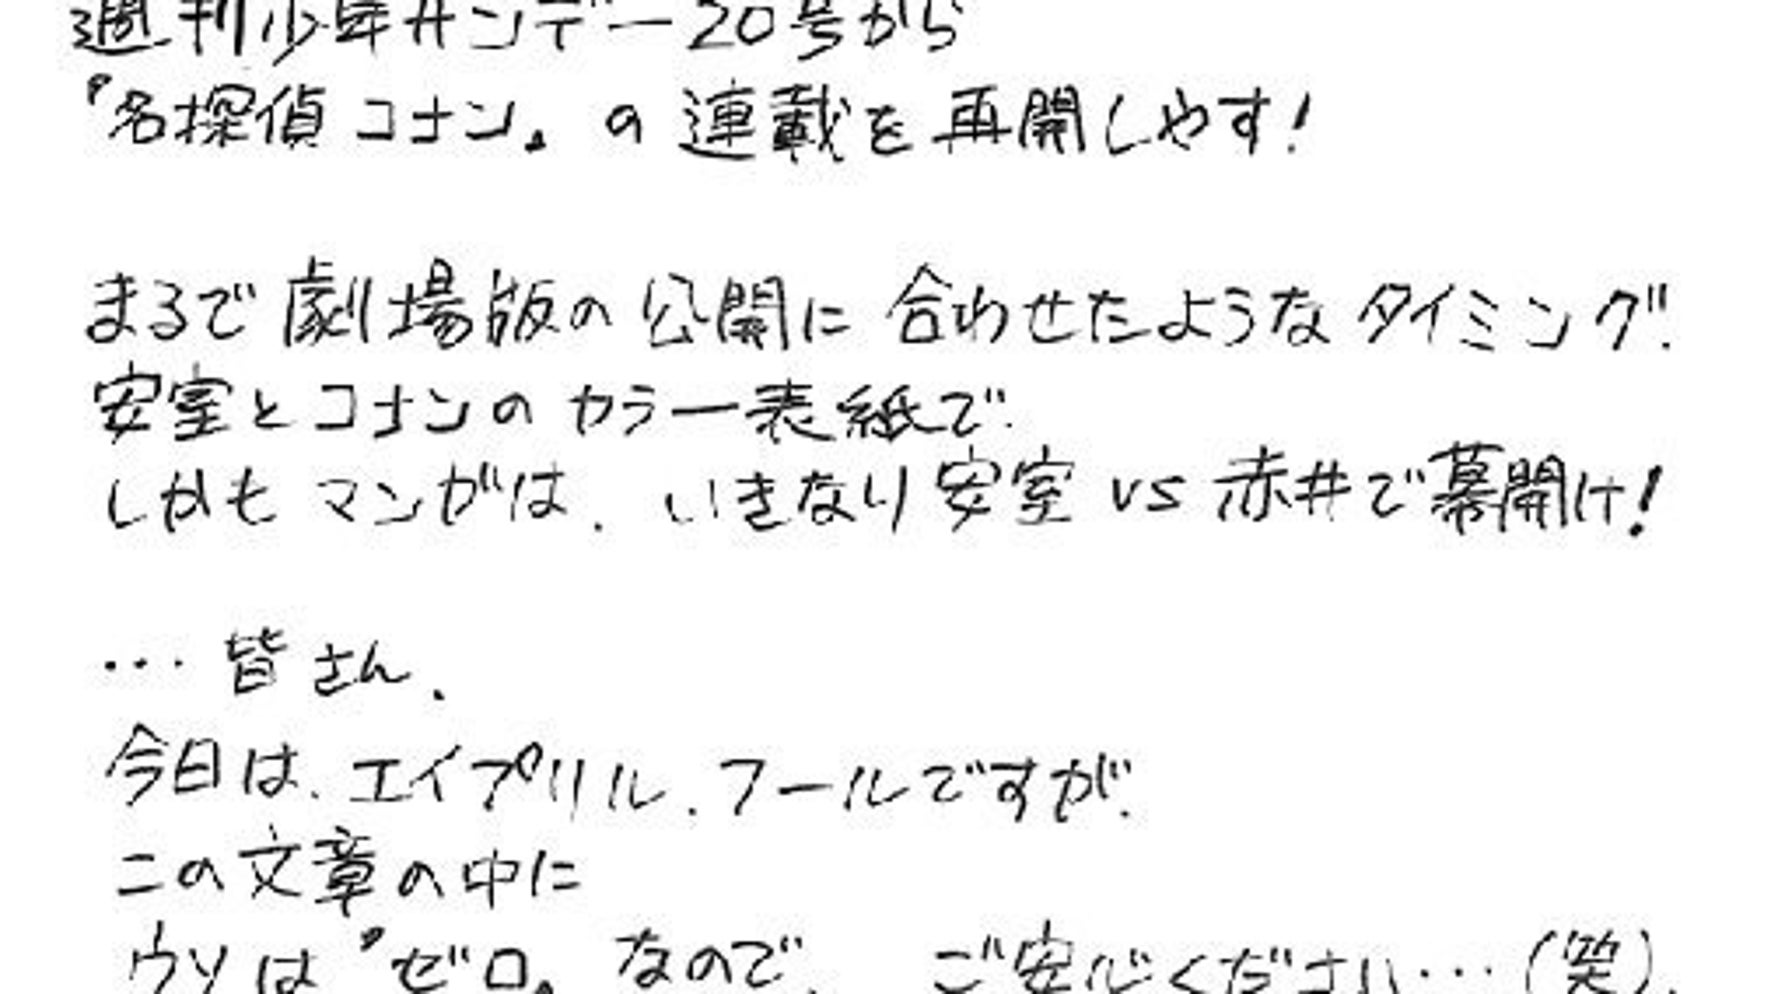 週刊少年サンデー20号から
『名探偵コナン』の連載を再開しやす!
まるで劇場版の公開に合わせたようなタイミング.
安室とコナンのカラー表紙で.
しかもマンガは、いきなり安室 vs 赤井で幕開け!
…皆さん、
今日は、エイプリル、フールですが、
この文章の中に
ウソは『ゼロ』なので、ご安心ください…(笑).